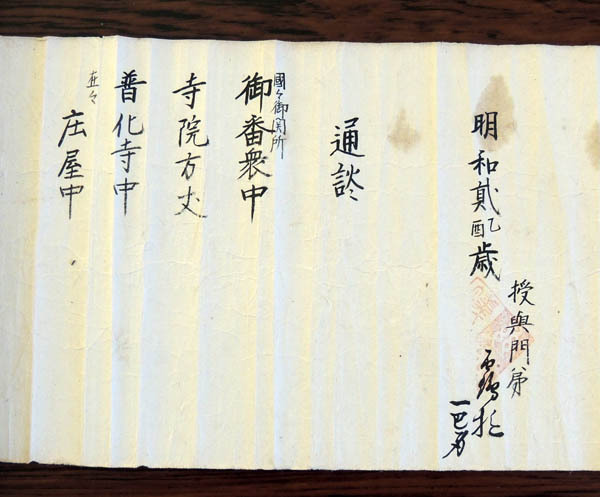 明和貳乙酉歳
授與門弟
通談
國々御関所
御番衆中
寺院方丈
普化寺中
在々
庄屋中